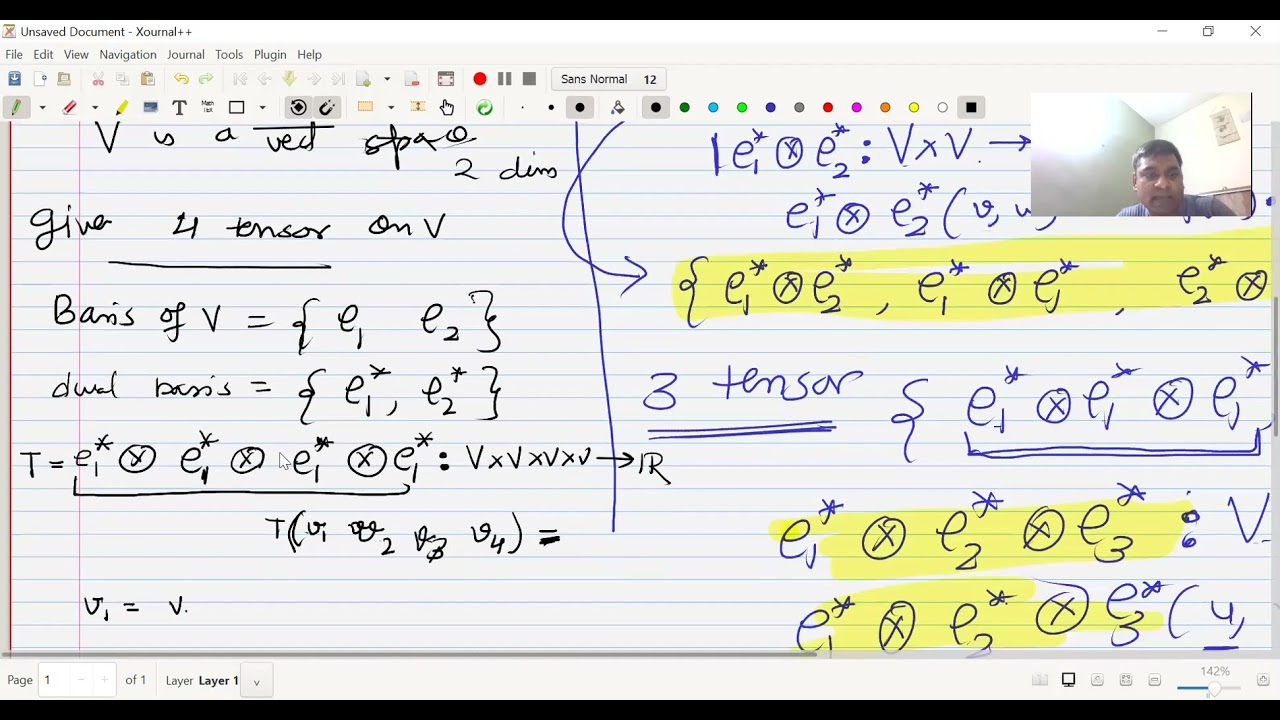 Unsaved Document - Xournal++
File Edit View Navigation Journal Tools Plugin Help
Sans Normal 12
V is a vect space
2 dim
Given 4 tensor on V
Basis of V = { e₁ e₂ }
dual basis = { e₁*, e₂* }
T = e₁* ⊗ e₁* ⊗ e₁* ⊗ e₁* : V×V×V×V → ℝ
T(v₁ v₂ v₃ v₄) =
v₁ = v.
e₁* ⊗ e₂* : V×V. →
e₁* ⊗ e₂* (v,
{ e₁* ⊗ e₂* , e₁* ⊗ e₁* , e₂* ⊗
3 tensor { e₁* ⊗ e₁* ⊗ e₁*
e₁* ⊗ e₂* ⊗ e₃* : V
e₁* ⊗ e₂* ⊗ e₃* ( u,
Page 1 of 1 Layer Layer 1
142%